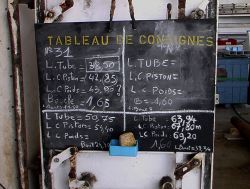 TABLEAU DE CONSIGNES
N°31
L.Tube= 38,50
L.C.Piston= 42,85
L.C.Poids= 43,85
Boucle 1,65
L.TUBE=
L.C.PISTON=
L.C POIDS=
B=1,60
L.Tube= 50,75
L.C Pistons= 53,40
L.C Poids=
L.Tube= 63,94
L.C Piston= 67,80m
L.C Poids= 69,20
1,60